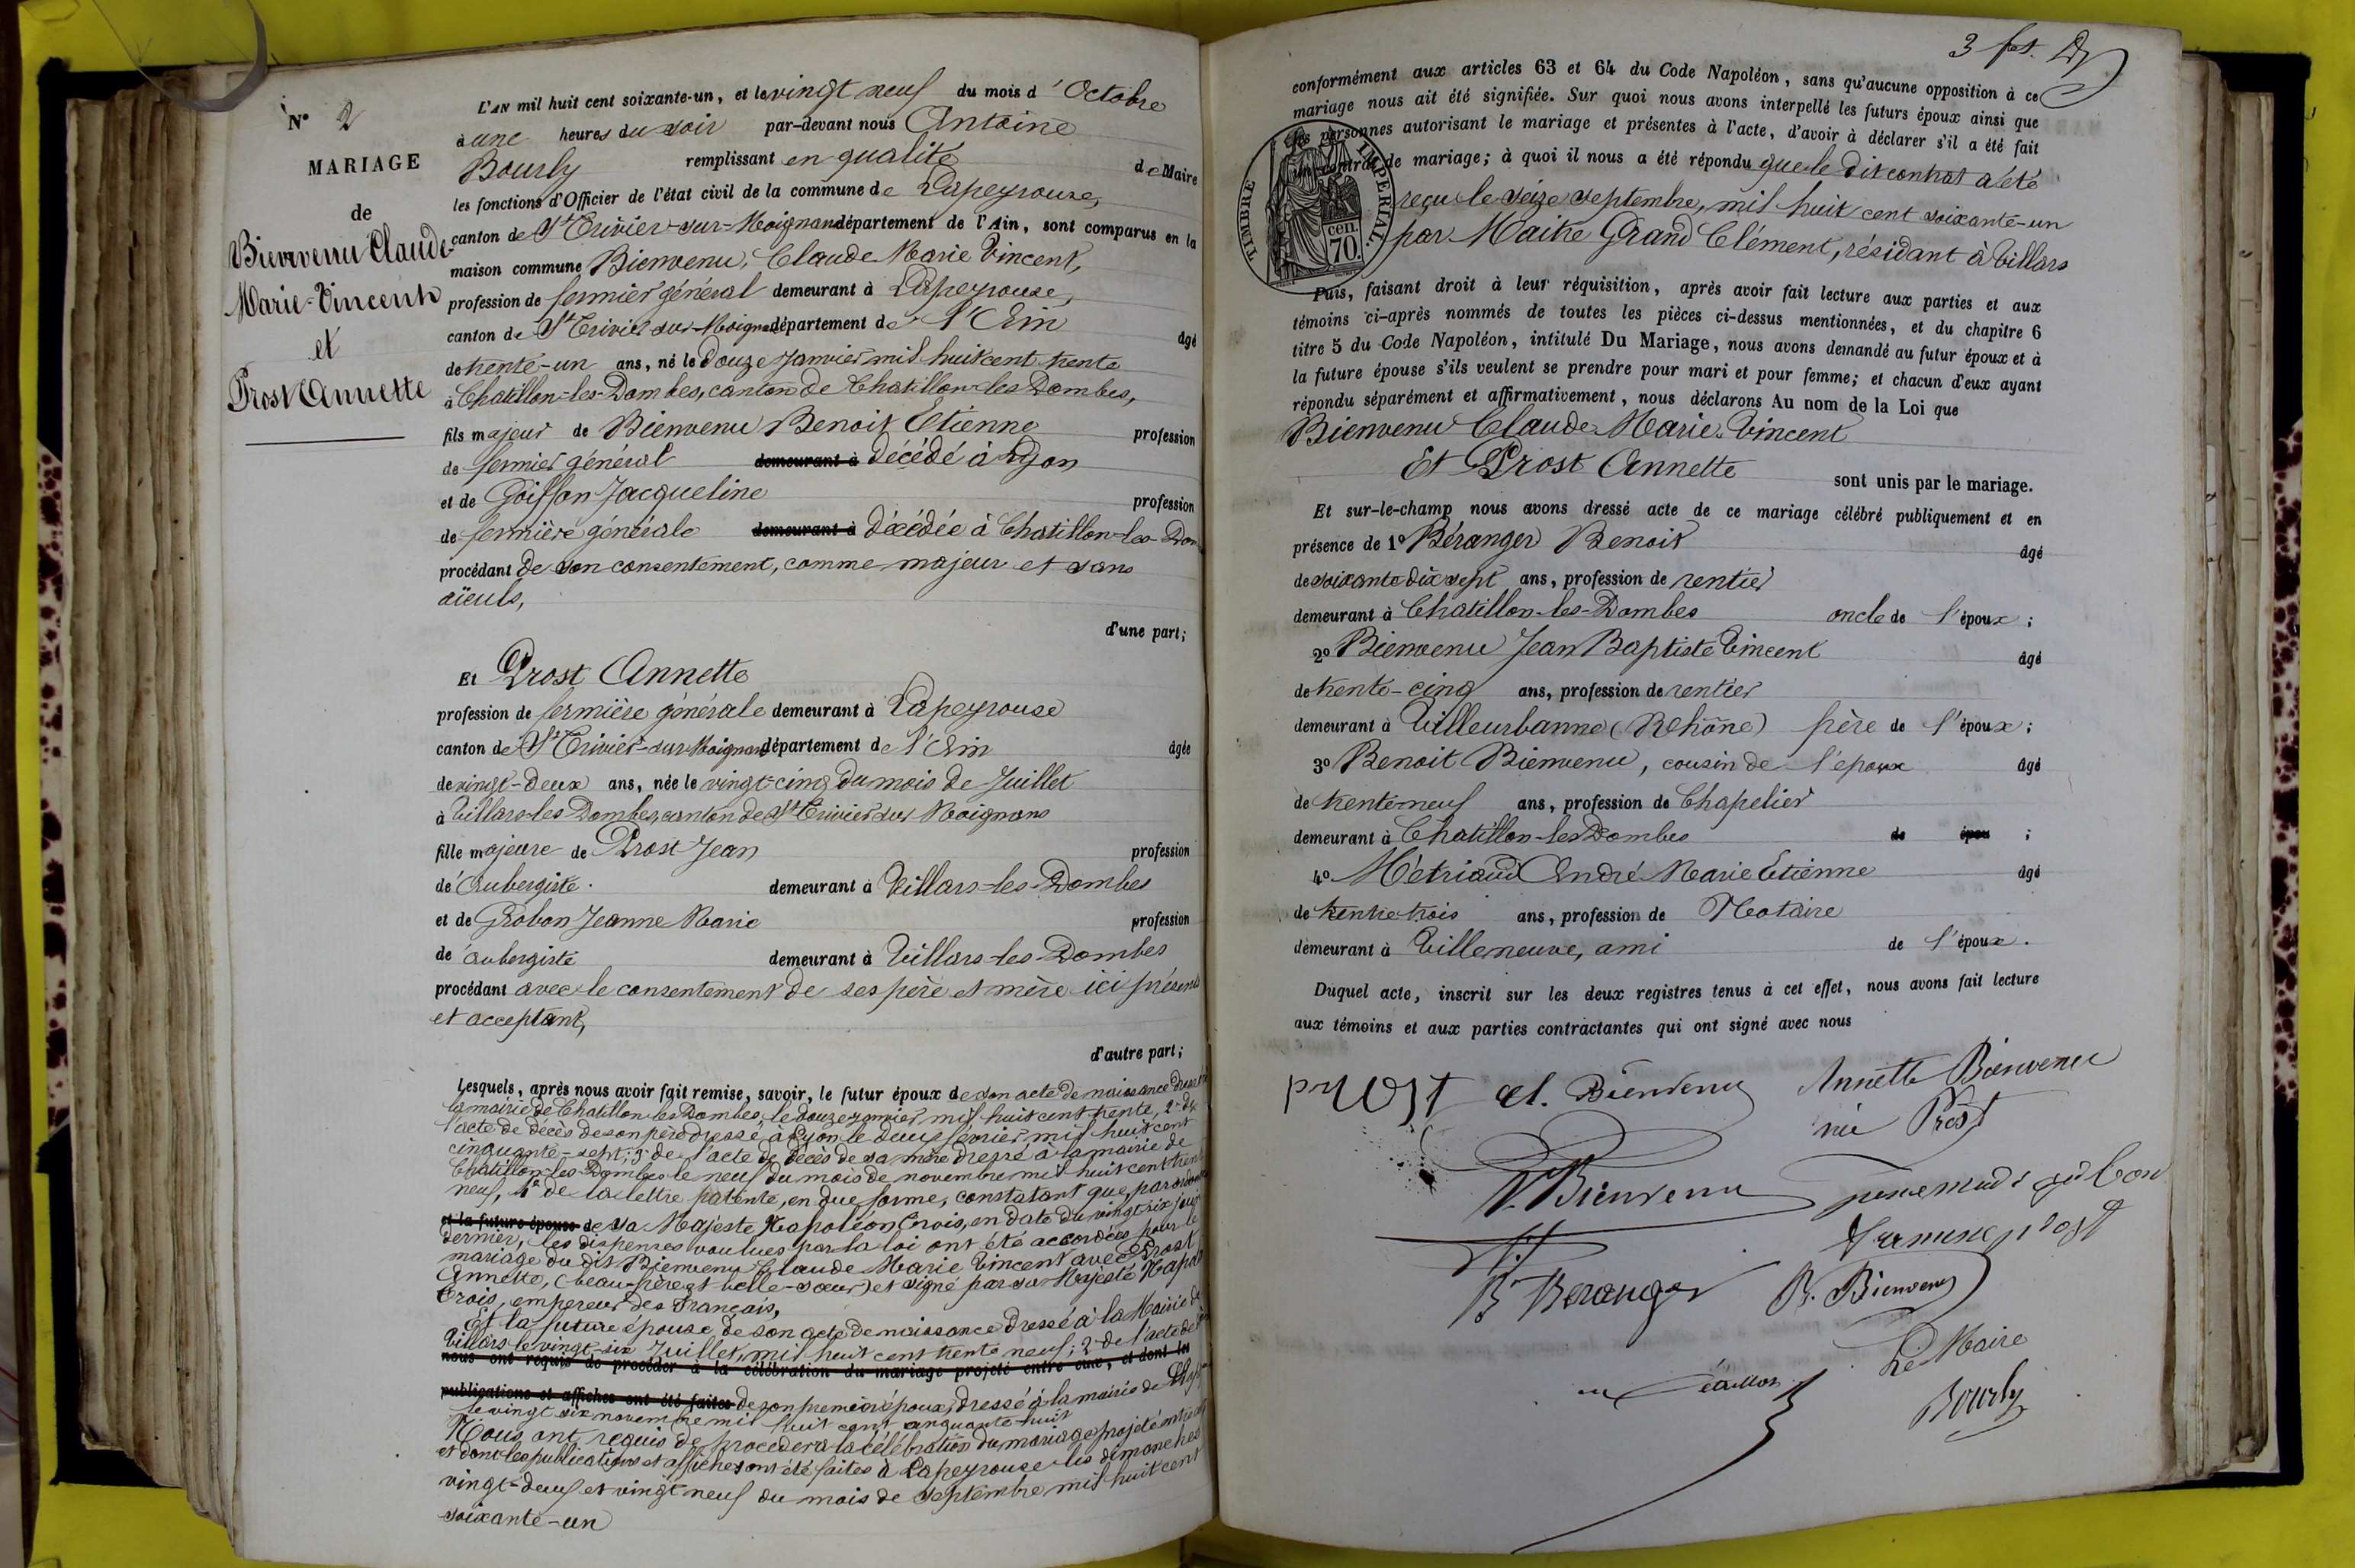 N° 2
MARIAGE
de
Bienvenu Claude
Marie-Vincent
et
Prost Annette
L'AN mil huit cent soixante-un, et le vingt neuf du mois d'Octobre
à une heures du soir par-devant nous Antoine
Bourly remplissant en qualité de Maire
les fonctions d'Officier de l'état civil de la commune de Lapeyrouse,
canton de St Trivier-sur-Moignans département de l'Ain, sont comparus en la
maison commune Bienvenu, Claude Marie Vincent,
profession de fermier général demeurant à Lapeyrouse,
canton de St Trivier sur Moignans département de l'Ain âgé
de trente-un ans, né le douze Janvier mil huit cent trente
à Chatillon-les-Dombes, canton de Chatillon-les-Dombes,
fils majeur de Bienvenu Benoit Etienne profession
de fermier général demeurant à décédé à Lyon
et de Goiffon Jacqueline profession
de fermière générale demeurant à décédée à Chatillon-les-Dom
procédant de son consentement, comme majeur et sans
aïeuls,
d'une part;
Et Prost Annette
profession de fermière générale demeurant à Lapeyrouse
canton de St Trivier-sur-Moignans département de l'Ain âgée
de vingt-deux ans, née le vingt-cinq du mois de Juillet
à Villars-les Dombes, canton de St Trivier sur Moignans
fille majeure de Prost Jean profession
de Aubergiste. demeurant à Villars-les-Dombes
et de Grobon Jeanne Marie profession
de aubergiste demeurant à Villars-les-Dombes
procédant avec le consentement de ses père et mère ici présents
et acceptant,
d'autre part;
Lesquels, après nous avoir fait remise, savoir, le futur époux de son acte de naissance dressé à
la mairie de Chatillon-les Dombes, le douze janvier, mil huit cent trente, 2° de
l'acte de décès de son père dressé à Lyon le deux février mil huit cent
cinquante-sept; 3° de l'acte de décès de sa mère dressé à la mairie de
Chatillon-les-Dombes le neuf du mois de novembre mil huit cent trente
neuf, 4° de la lettre patente, en due forme, constatant que, par ordonnance
et la future épouse de sa Majesté Napoléon trois, en date du vingt six Juin
dernier, les dispenses voulues par la loi ont été accordées pour le
mariage du dit Bienvenu Claude Marie Vincent avec Prost
Annette, (beau-frère et belle-sœur) et signé par sa Majesté Napol
trois, empereur des Français,
Et la future épouse de son acte de naissance dressé à la Mairie de
Villars le vingt-six Juillet, mil huit cent trente neuf; 2° de l'acte de
nous ont requis de procéder à la célébration du mariage projeté entre eux, et dont les
publications et affiches ont été faites de son premier époux, dressé à la mairie de
le vingt six novembre mil huit cent cinquante-huit
Nous ont requis de procéder à la célébration du mariage projeté entre eux
et dont les publications et affiches ont été faites à Lapeyrouse les dimanches
vingt-deux et vingt neuf du mois de septembre mil huit cent
soixante-un
3 fet.
conformément aux articles 63 et 64 du Code Napoléon, sans qu'aucune opposition à ce
mariage nous ait été signifiée. Sur quoi nous avons interpellé les futurs époux ainsi que
les personnes autorisant le mariage et présentes à l'acte, d'avoir à déclarer s'il a été fait
un contrat de mariage; à quoi il nous a été répondu que le dit contrat a été
reçu le seize septembre, mil huit cent soixante-un
par Maitre Grand Clément, résidant à Villars
TIMBRE IMPERIAL.
cen.
70.
Puis, faisant droit à leur réquisition, après avoir fait lecture aux parties et aux
témoins ci-après nommés de toutes les pièces ci-dessus mentionnées, et du chapitre 6
titre 5 du Code Napoléon, intitulé Du Mariage, nous avons demandé au futur époux et à
la future épouse s'ils veulent se prendre pour mari et pour femme; et chacun d'eux ayant
répondu séparément et affirmativement, nous déclarons Au nom de la Loi que
Bienvenu Claude Marie Vincent
Et Prost Annette sont unis par le mariage.
Et sur-le-champ nous avons dressé acte de ce mariage célébré publiquement et en
présence de 1° Béranger Benoit âgé
de soixante dix sept ans, profession de rentier
demeurant à Chatillon-les-Dombes oncle de l'époux;
2° Bienvenu Jean Baptiste Vincent âgé
de trente-cinq ans, profession de rentier
demeurant à Villeurbanne (Rhône) frère de l'époux;
3° Benoit Bienvenu, cousin de l'époux âgé
de trente neuf ans, profession de Chapelier
demeurant à Chatillon-les Dombes de épou ;
4° Métriaud André Marie Etienne âgé
de trente trois ans, profession de Notaire
demeurant à Villeneuve, ami de l'époux.
Duquel acte, inscrit sur les deux registres tenus à cet effet, nous avons fait lecture
aux témoins et aux parties contractantes qui ont signé avec nous
prost Cl. Bienvenu Annette Bienvenu
née Prost
V. Bienvenu
prost
B Beranger B. Bienvenu
Le Maire
Bourly